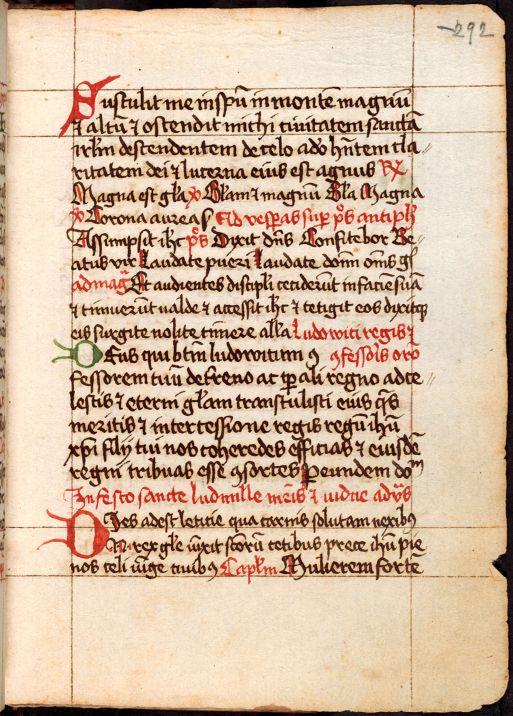 292
Sustulit me in spũ in montem magnũ
⁊ altũ ⁊ ostendit michi ciuitatem sanctã
irl̃m descendentem de celo a do hñtem cla
ritatem dei ⁊ lucerna eius est agnus R̸
Magna est gl̃a v̸ Gl̃am ⁊ magnũ Gl̃a Magna
v̸ Corona aurea s̃ Ad vesperas sup p̃s antiph̃
Assumpsit ih̃c p̃s Dixit dñs Confitebor Be
atus vir Laudate pueri Laudate dom̃ om̃s g̃
ad mag̃ Et audientes discipl̃i ceciderũt in faciem suã
⁊ timuerũt valde ⁊ accessit ih̃c ⁊ tetigit eos dixitqꝫ
eis surgite nolite timere alla Ludowici regis ⁊
Deus qui btm̃ ludowicum ꝯ ꝯfessoris oro
fessorem tuũ de terreno ac ꝑali regno ad ce
lestis ⁊ eterni gl̃am transtulisti eius q̃s
meritis ⁊ intercessione regis regũ ih̃u
xp̃i filij tui nos coheredes efficias ⁊ eiusdẽ
regni tribuas esse ꝯsortes ꝑ eundem dom̃
In festo sancte ludmille m̃ris ⁊ vidue ad ṽs
Dies adest leticie qua carnis solutam nexibꝰ
rex gl̃e iũxit sctõrũ cetibus prece ih̃u pie
nos celi iũge ciuibꝰ Capl̃m Mulierem forte